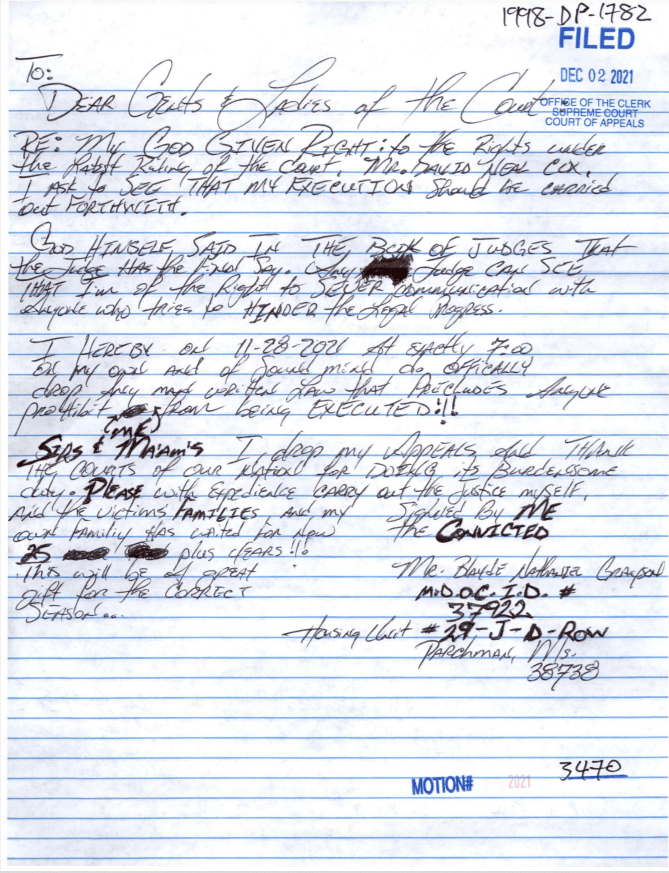 1998-DP-1782
FILED
DEC 02 2021
OFFICE OF THE CLERK
SUPREME COURT
COURT OF APPEALS
To:
DEAR Gents & Ladies of the Court
RE: My GOD GIVEN RIGHT: to the Rights under
the Latest Ruling of the Court. MR. DAVID NEAL COX.
I ASK to SEE THAT my EXECUTION Should be carried
out FORTHWITH.
GOD HIMSELF SAID IN THE BOOK OF JUDGES THAT
the Judge HAS the Final Say. Judge CAN SEE
THAT I'm of the Right to SEVER communication with
anyone who tries to HINDER the Legal Progress.
I HEREBY on 11-28-2021 At exactly 7:00
on my own and of sound mind do OFFICALLY
drop any man written Law that PRECLUDES Anyone
prohibit from being EXECUTED!!!
(ME)
SIRS & MA'AM'S I drop my APPEALS, and THANK
THE COURTS of our Nation for DOING its Burdensome
duty. PLEASE with Expedience CARRY out the Justice myself,
AND the victims FAMILIES, and my
own family HAS waited for now
25 plus YEARS!!!
This will be a great
gift for the CORRECT
SEASON...
Signed By ME
the CONVICTED
MR. Blayde Nathaniel Grayson
M.D.O.C. I.D. #
37922
Housing Unit # 29-J-D-ROW
PARCHMAN, Ms.
38738
MOTION# 2021 3470